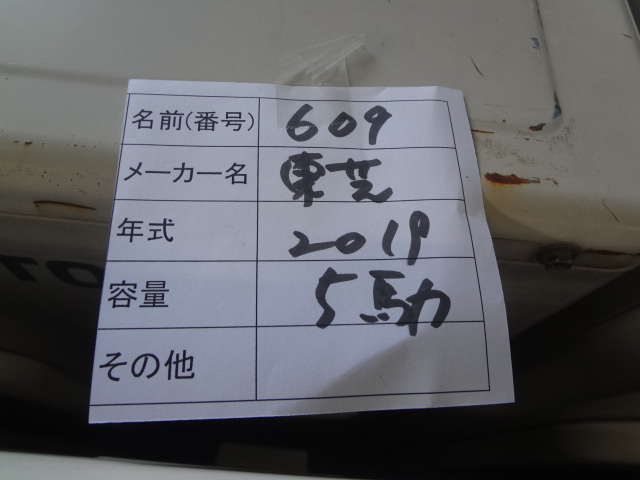 名前(番号) 609
メーカー名 東芝
年式 2019
容量 5馬力
その他